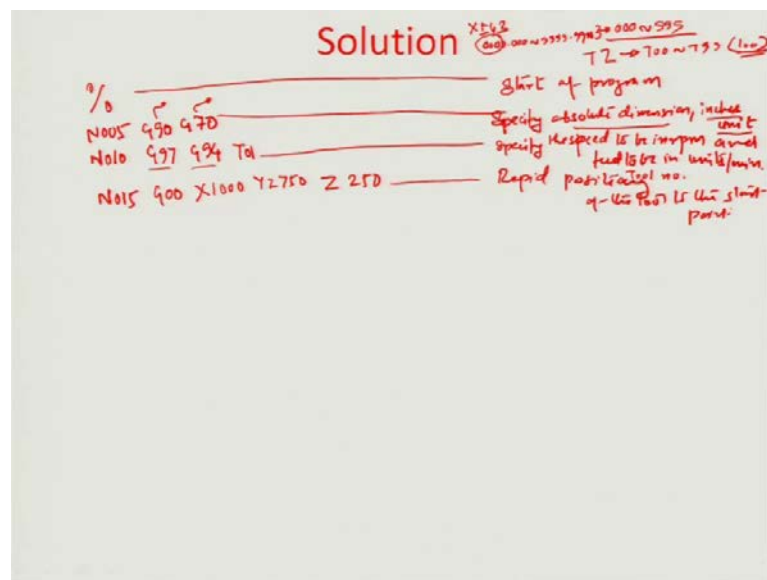 Solution
% Start of program
N005 G90 G70 Specify absolute dimension, inches unit
N010 G97 G94 T01 specify the speed to be in rpm and
feed to be in units/min.
Tool no.
N015 G00 X1000 Y2750 Z 250 Rapid positioning
of the tool to the start
point.